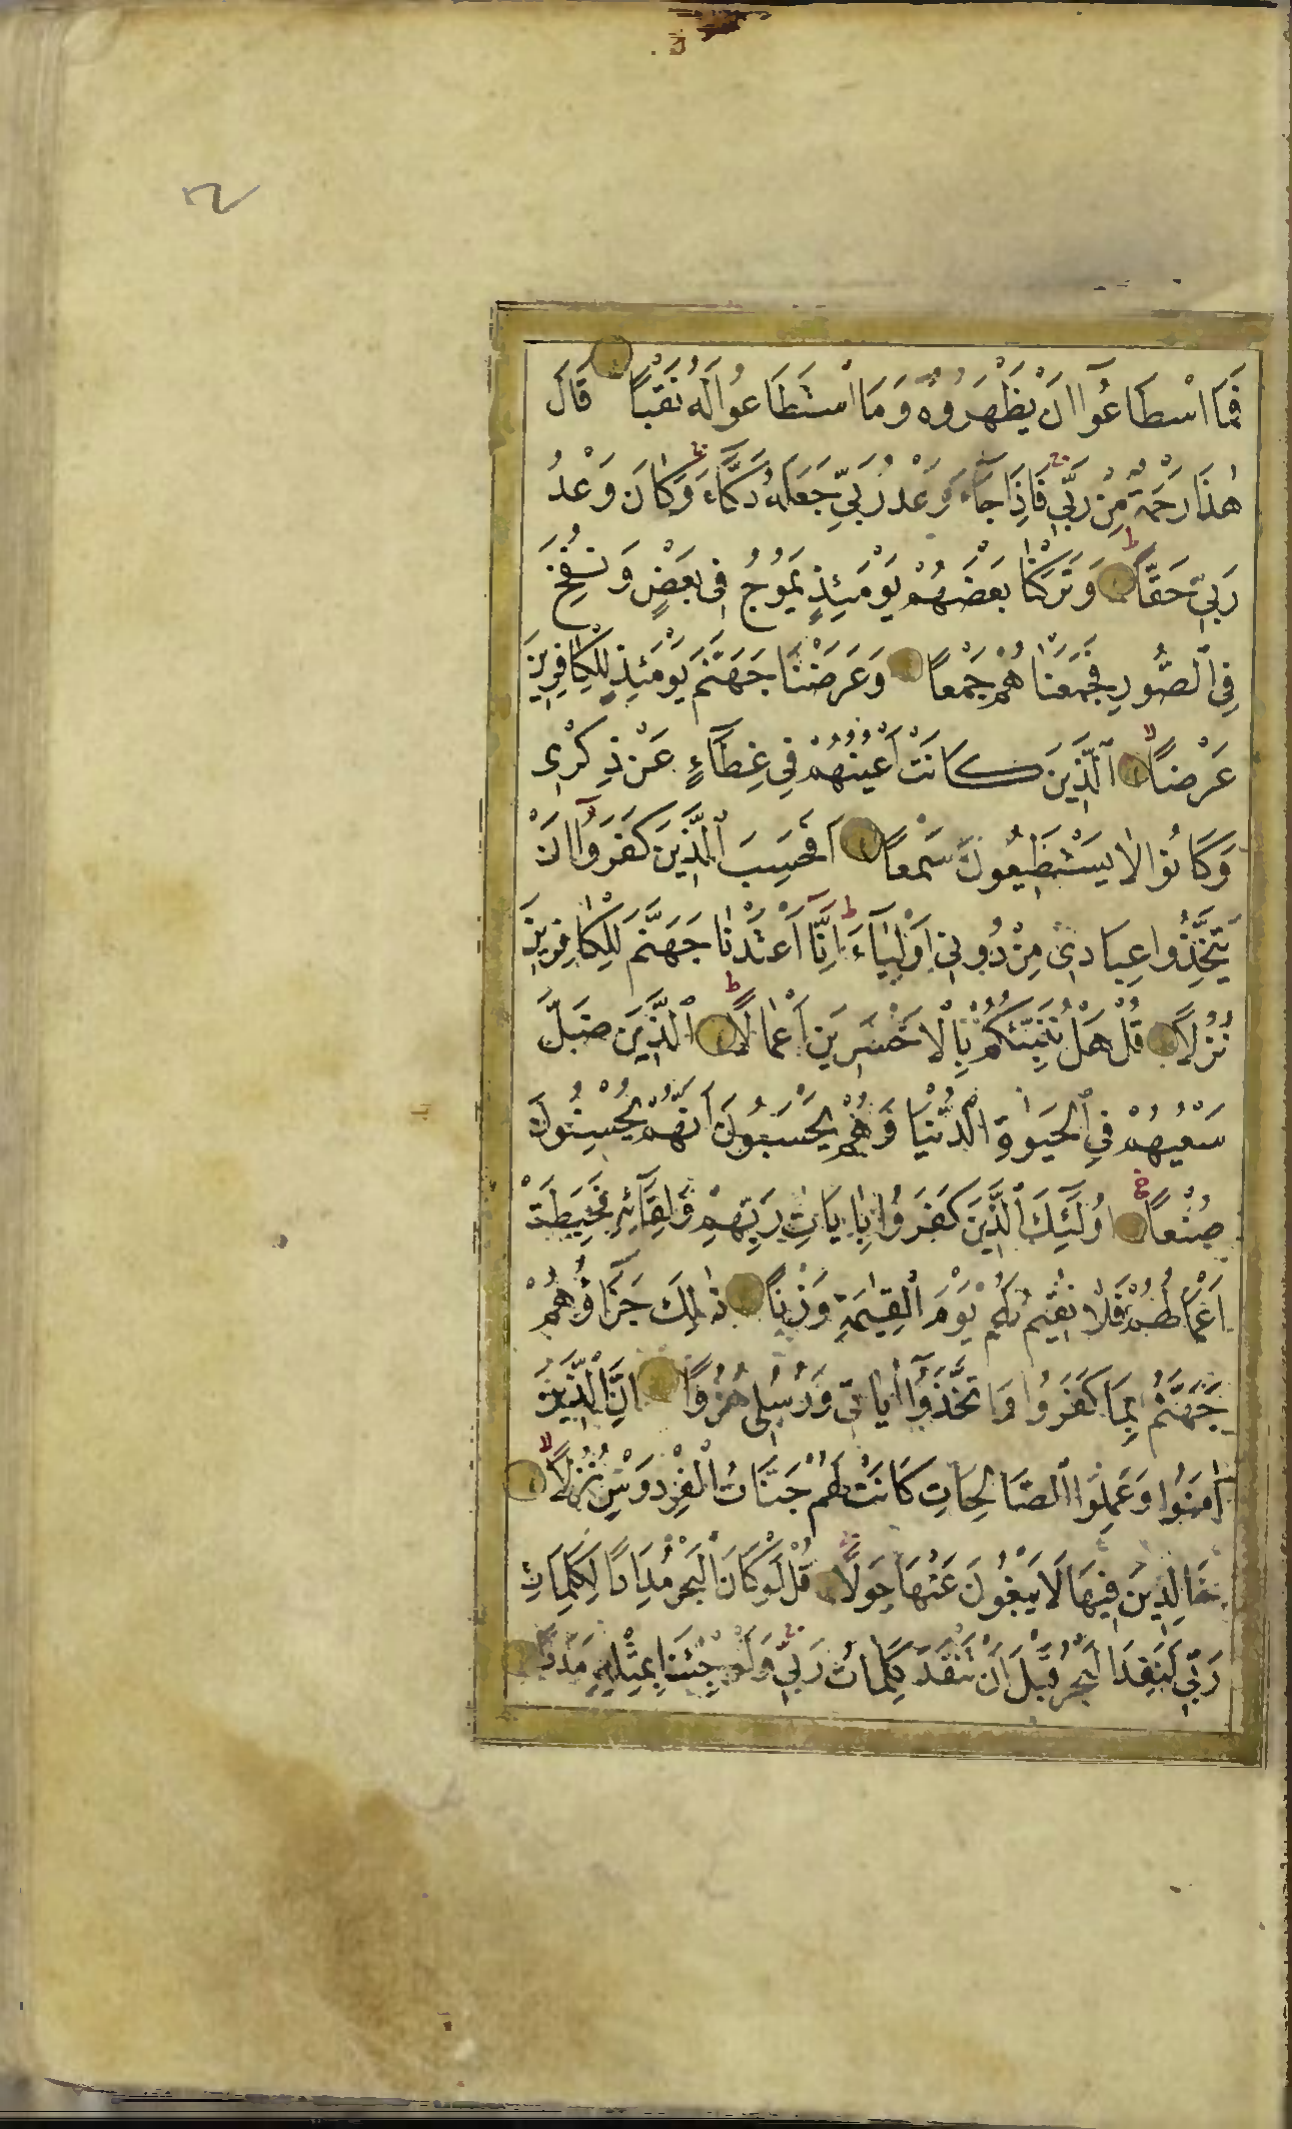 فَمَا اسْطَاعُوٓا اَنْ يَظْهَرُوهُ وَمَا اسْتَطَاعُوا لَهُ نَقْبًا قَالَ
هٰذَا رَحْمَةٌ مِنْ رَبِّي فَاِذَا جَآءَ وَعْدُ رَبِّي جَعَلَهُ دَكَّآءَ وَكَانَ وَعْدُ
رَبِّي حَقًّا وَتَرَكْنَا بَعْضَهُمْ يَوْمَئِذٍ يَمُوجُ فِي بَعْضٍ وَنُفِخَ
فِي الصُّورِ فَجَمَعْنَاهُمْ جَمْعًا وَعَرَضْنَا جَهَنَّمَ يَوْمَئِذٍ لِلْكَافِرِينَ
عَرْضًا اَلَّذِينَ كَانَتْ اَعْيُنُهُمْ فِي غِطَآءٍ عَنْ ذِكْرِي
وَكَانُوا لَا يَسْتَطِيعُونَ سَمْعًا اَفَحَسِبَ الَّذِينَ كَفَرُوٓا اَنْ
يَتَّخِذُوا عِبَادِي مِنْ دُونِي اَوْلِيَآءَ اِنَّآ اَعْتَدْنَا جَهَنَّمَ لِلْكَافِرِينَ
نُزُلًا قُلْ هَلْ نُنَبِّئُكُمْ بِالْاَخْسَرِينَ اَعْمَالًا اَلَّذِينَ ضَلَّ
سَعْيُهُمْ فِي الْحَيٰوةِ الدُّنْيَا وَهُمْ يَحْسَبُونَ اَنَّهُمْ يُحْسِنُونَ
صُنْعًا اُولٰٓئِكَ الَّذِينَ كَفَرُوا بِاٰيَاتِ رَبِّهِمْ وَلِقَآئِهِ فَحَبِطَتْ
اَعْمَالُهُمْ فَلَا نُقِيمُ لَهُمْ يَوْمَ الْقِيٰمَةِ وَزْنًا ذٰلِكَ جَزَآؤُهُمْ
جَهَنَّمُ بِمَا كَفَرُوا وَاتَّخَذُوٓا اٰيَاتِي وَرُسُلِي هُزُوًا اِنَّ الَّذِينَ
اٰمَنُوا وَعَمِلُوا الصَّالِحَاتِ كَانَتْ لَهُمْ جَنَّاتُ الْفِرْدَوْسِ نُزُلًا
خَالِدِينَ فِيهَا لَا يَبْغُونَ عَنْهَا حِوَلًا قُلْ لَوْ كَانَ الْبَحْرُ مِدَادًا لِكَلِمَاتِ
رَبِّي لَنَفِدَ الْبَحْرُ قَبْلَ اَنْ تَنْفَدَ كَلِمَاتُ رَبِّي وَلَوْ جِئْنَا بِمِثْلِهِ مَدَدًا